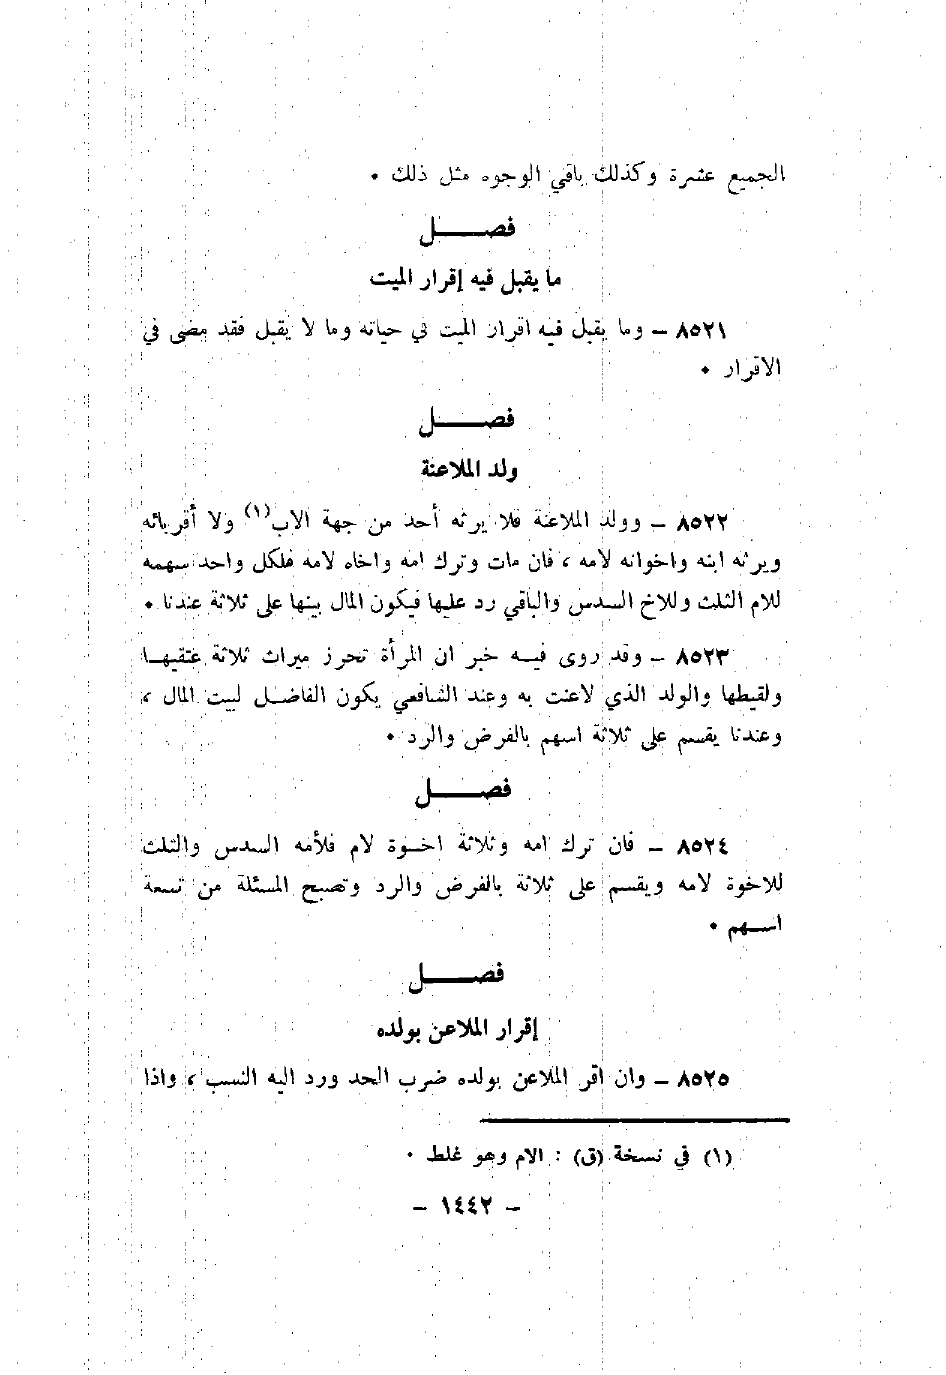 الجميع عشرة وكذلك باقي الوجوه مثل ذلك ٠
فصــــل
ما يقبل فيه إقرار الميت
٨٥٢١ – وما يقبل فيه اقرار الميت في حياته وما لا يقبل فقد مضى في
الاقرار ٠
فصــــل
ولد الملاعنة
٨٥٢٢ – وولد الملاعنة فلا يرثه أحد من جهة الاب(١) ولا أقربائه
ويرثه ابنه واخوانه لامه ، فان مات وترك امه واخاه لامه فلكل واحد سهمه
للام الثلث وللاخ السدس والباقي رد عليها فيكون المال بينها على ثلاثة عندنا ٠
٨٥٢٣ – وقد روى فيــه خبر ان المرأة تحرز ميراث ثلاثة عتقيهــا
ولقيطها والولد الذي لاعنت به وعند الشافعي يكون الفاضــل لبيت المال ،
وعندنا يقسم على ثلاثة اسهم بالفرض والرد ٠
فصــــل
٨٥٢٤ – فان ترك امه وثلاثة اخــوة لام فلأمه السدس والثلث
للاخوة لامه ويقسم على ثلاثة بالفرض والرد وتصبح المسئلة من تسعة
اســهم ٠
فصــــل
إقرار الملاعن بولده
٨٥٢٥ – وان اقر الملاعن بولده ضرب الحد ورد اليه النسب ، واذا
(١) في نسخة (ق) : الام وهو غلط ٠
– ١٤٤٢ –